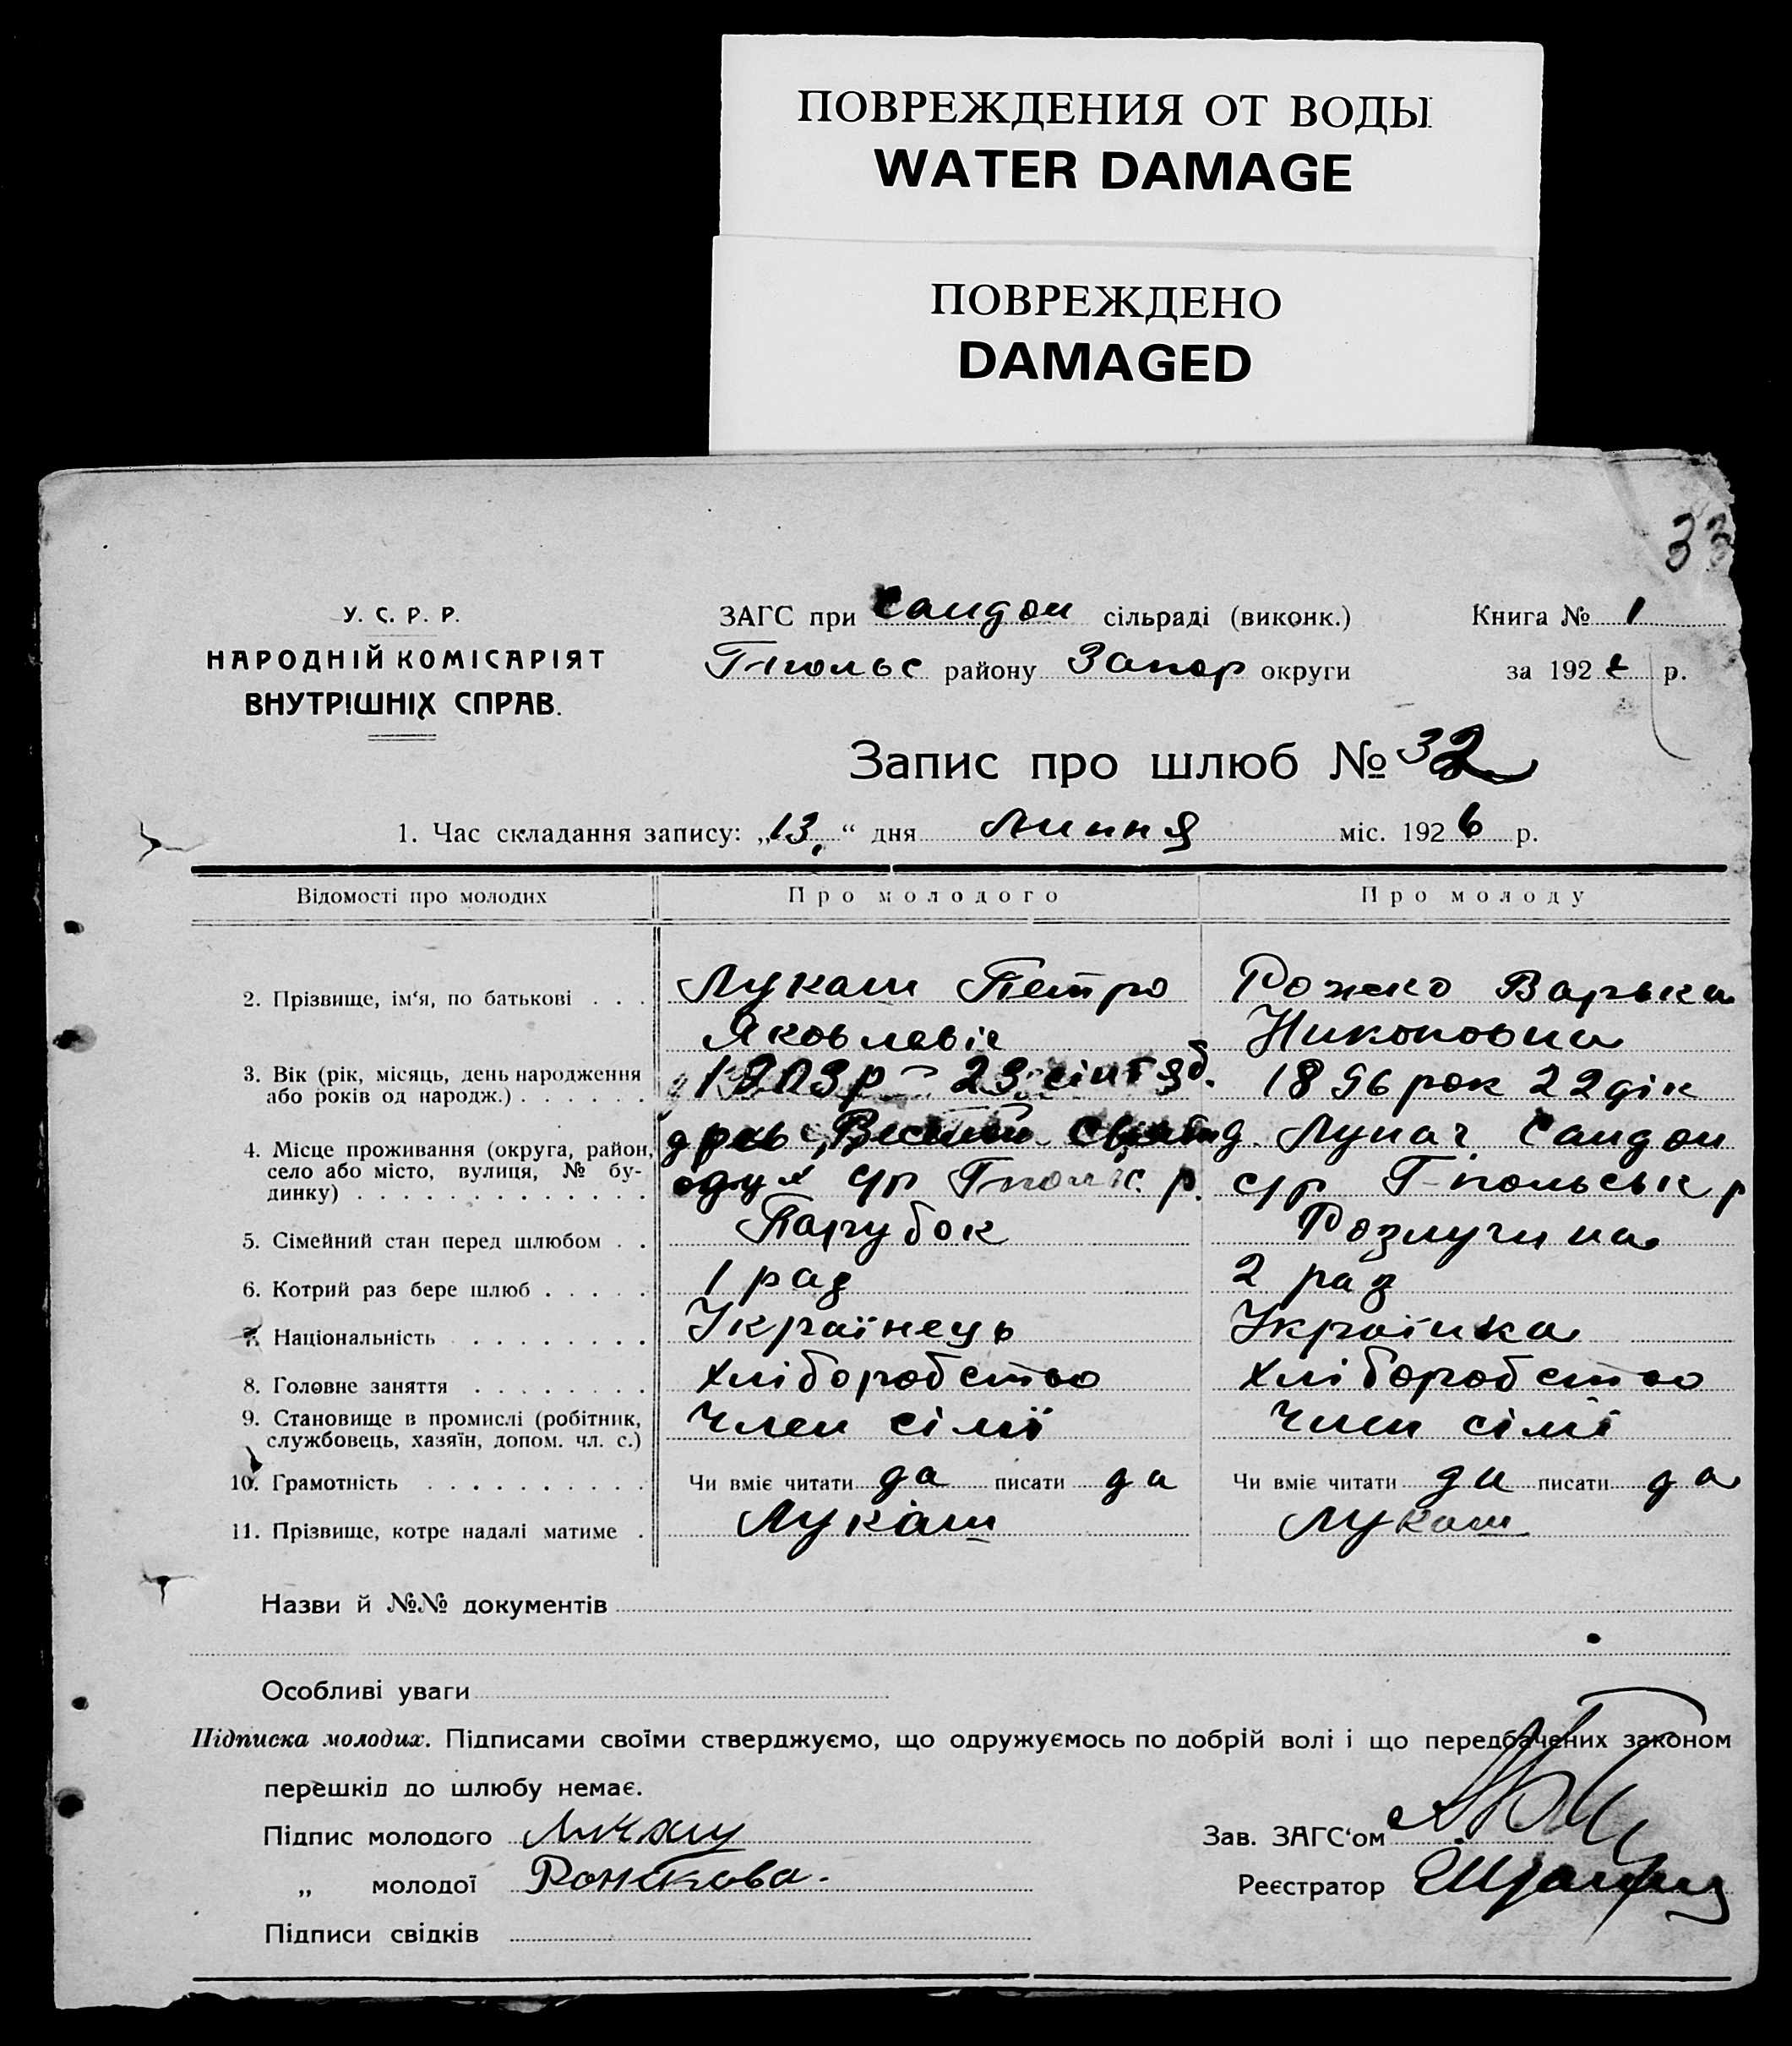 ПОВРЕЖДЕНИЯ ОТ ВОДЫ
WATER DAMAGE
ПОВРЕЖДЕНО
DAMAGED
33
У. С. Р. Р.
НАРОДНІЙ КОМІСАРІЯТ
ВНУТРІШНІХ СПРАВ.
ЗАГС при Сандон сільраді (виконк.) Книга № 1
Г-польс району Запор округи за 192 р.
Запис про шлюб № 32
1. Час складання запису: „13“ дня Липня міс. 1926 р.
Відомості про молодих Про молодого Про молоду
2. Прізвище, ім‘я, по батькові . . . Лукаш Петро Рожко Варька
Яковлевіч Никоновна
3. Вік (рік, місяць, день народження 1903 р – 23 сінтяб. 1896 рок 22 дік
або років од народж.) . . . . . .
4. Місце проживання (округа, район, д. Лукач Сандон
село або місто, вулиця, № бу- с/р Г-польськ р
динку) . . . . . . . . . . . . . с/р Г-польс. р.
5. Сімейний стан перед шлюбом . . Парубок Розлучина
6. Котрий раз бере шлюб . . . . . 1 раз 2 раз
7. Національність . . . . . . . . Українець Українка
8. Головне заняття . . . . . . . . Хліборобство Хліборобство
9. Становище в промислі (робітник, Член сімї Член сімї
службовець, хазяїн, допом. чл. с.)
10. Грамотність . . . . . . . . . . Чи вміє читати да писати да Чи вміє читати да писати да
11. Прізвище, котре надалі матиме . Лукаш Лукаш
Назви й №№ документів
Особливі уваги
Підписка молодих. Підписами своїми стверджуємо, що одружуємось по добрій волі і що передбачених законом
перешкід до шлюбу немає.
Підпис молодого Зав. ЗАГС‘ом
„ молодої Рожкова. Реєстратор
Підписи свідків